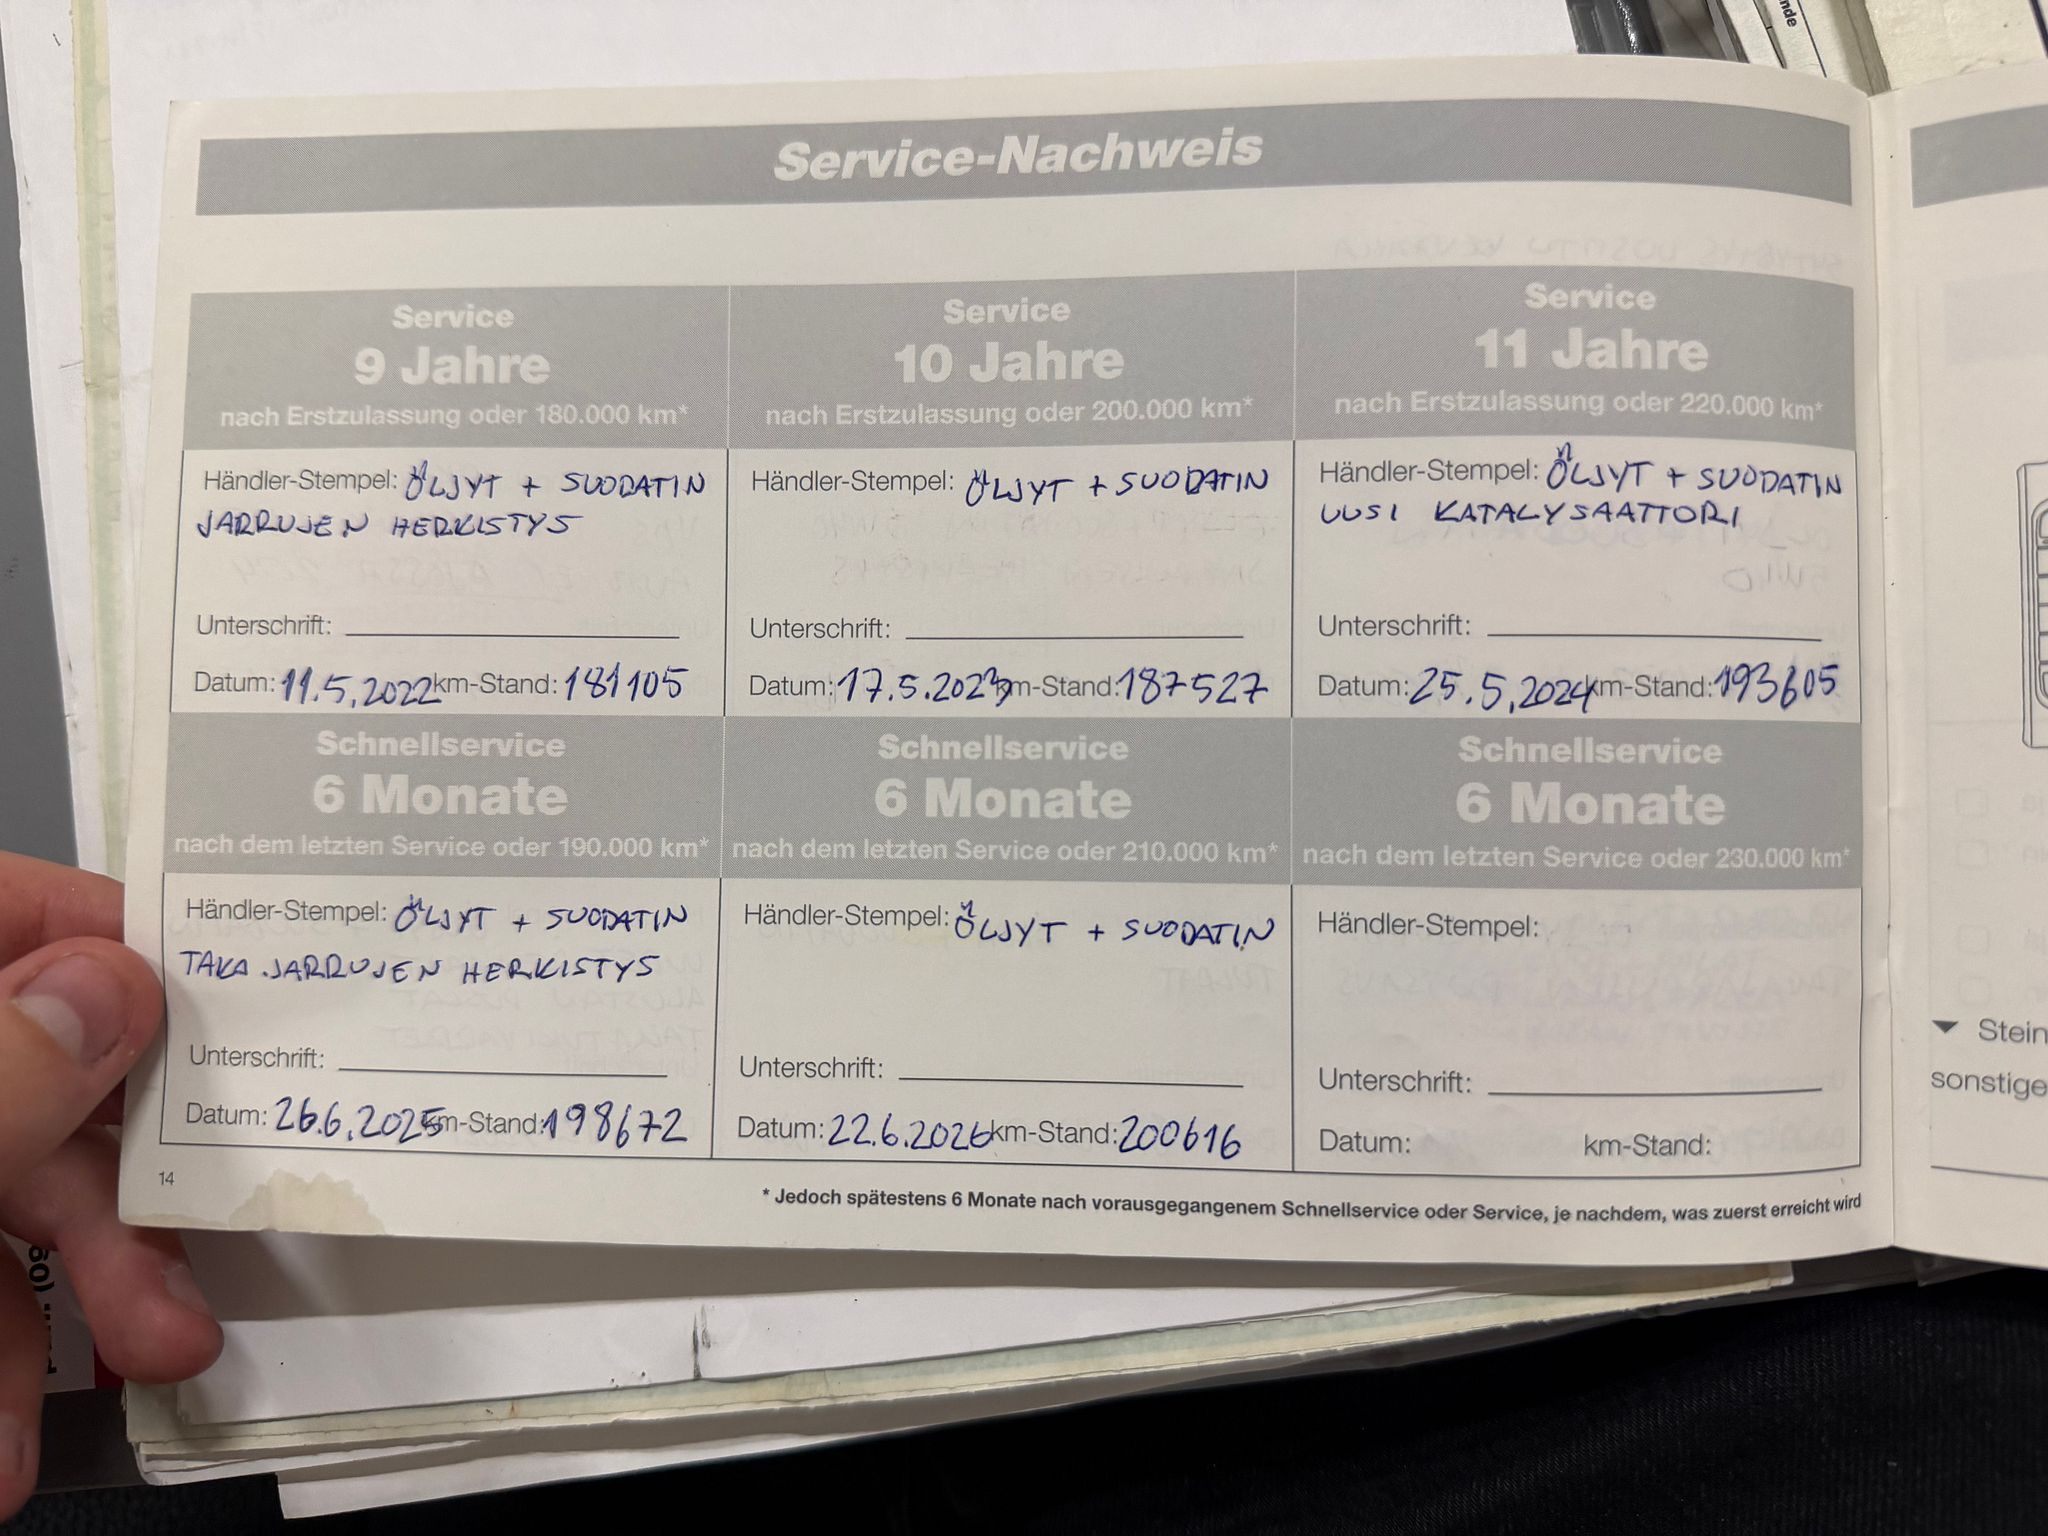 Service-Nachweis
Service
9 Jahre
nach Erstzulassung oder 180.000 km*
Händler-Stempel: ÖLJYT + SUODATIN
JARRUJEN HERKISTYS
Unterschrift:
Datum: 11.5.2022 km-Stand: 181105
Service
10 Jahre
nach Erstzulassung oder 200.000 km*
Händler-Stempel: ÖLJYT + SUODATIN
Unterschrift:
Datum: 17.5.2023 km-Stand: 187527
Service
11 Jahre
nach Erstzulassung oder 220.000 km*
Händler-Stempel: ÖLJYT + SUODATIN
UUSI KATALYSAATTORI
Unterschrift:
Datum: 25.5.2024 km-Stand: 193605
Schnellservice
6 Monate
nach dem letzten Service oder 190.000 km*
Händler-Stempel: ÖLJYT + SUODATIN
TAKA JARRUJEN HERKISTYS
Unterschrift:
Datum: 26.6.2025 km-Stand: 198672
Schnellservice
6 Monate
nach dem letzten Service oder 210.000 km*
Händler-Stempel: ÖLJYT + SUODATIN
Unterschrift:
Datum: 22.6.2026 km-Stand: 200616
Schnellservice
6 Monate
nach dem letzten Service oder 230.000 km*
Händler-Stempel:
Unterschrift:
Datum: km-Stand:
14
* Jedoch spätestens 6 Monate nach vorausgegangenem Schnellservice oder Service, je nachdem, was zuerst erreicht wird
Stein
sonstige